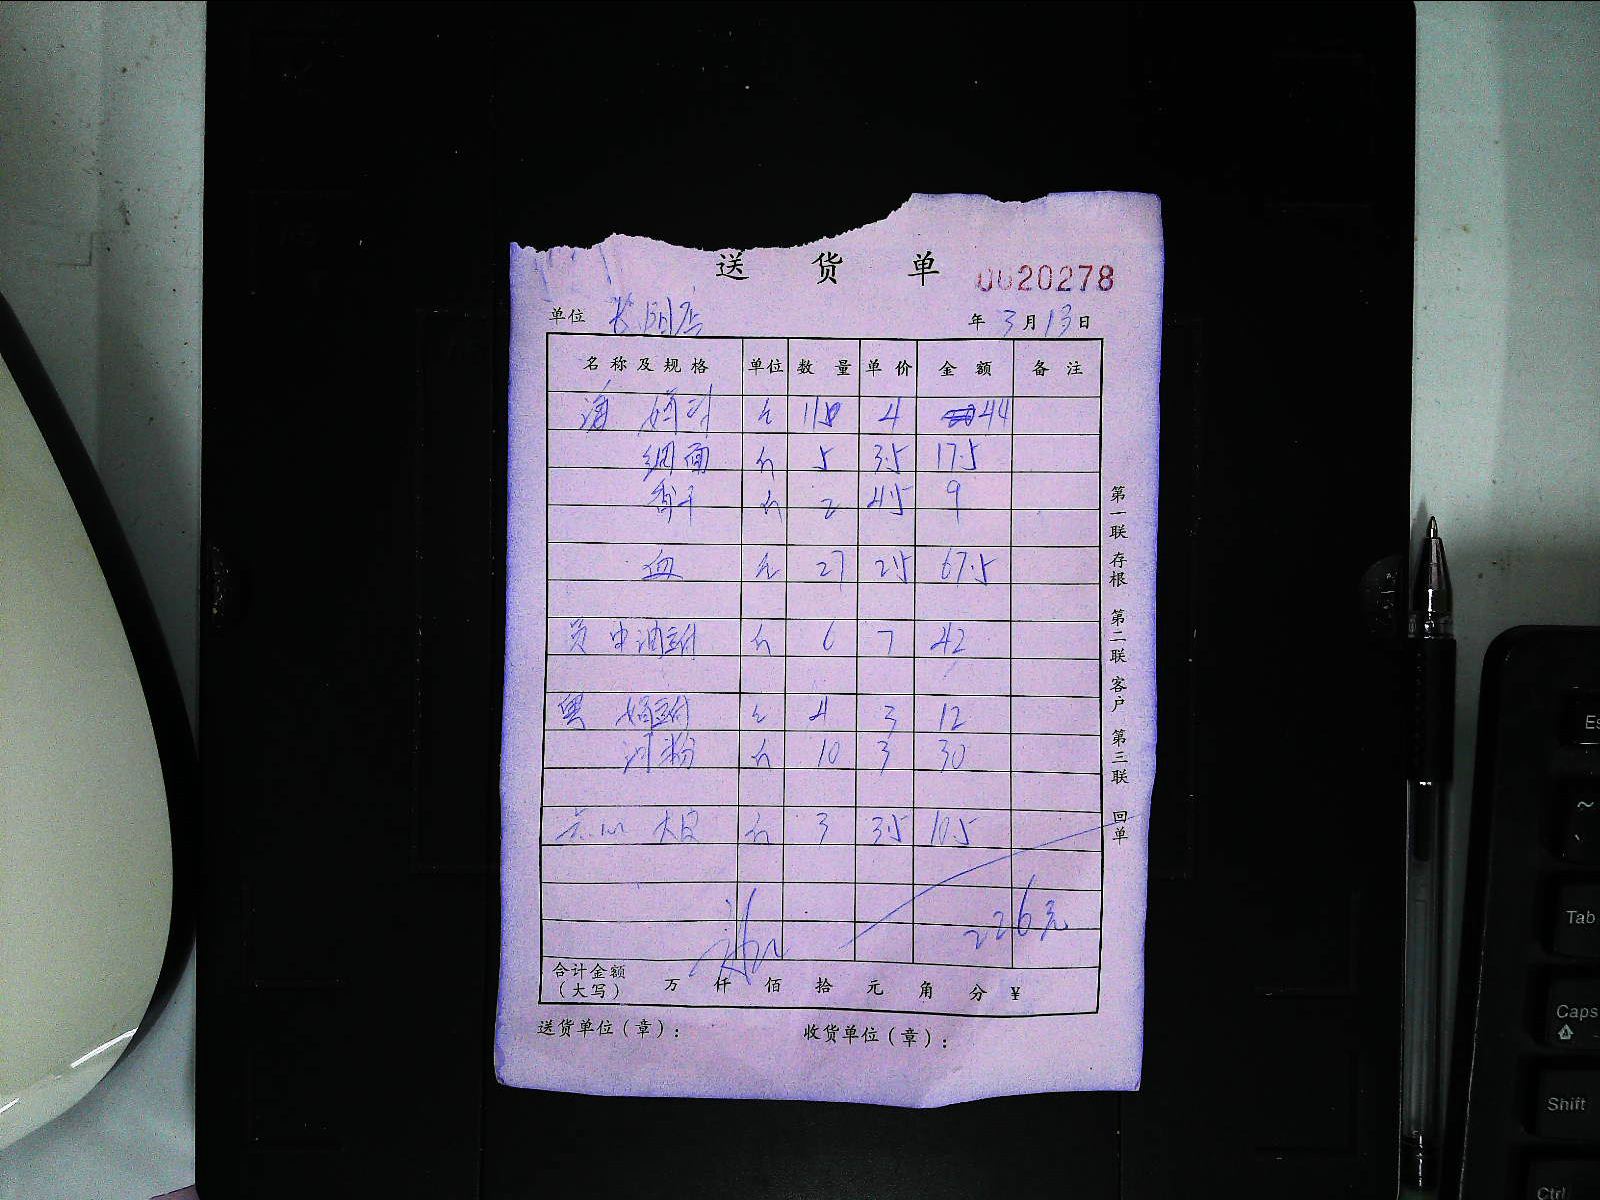 送 货 单 0020278
单位 年 3 月 13 日
名称及规格 单位 数量 单价 金额 备注
4 44
细面 斤 5 3.5 17.5
香干 斤 2 4.5 9
血 27 2.5 67.5
中油豆付 斤 6 7 42
粤 4 3 12
河粉 斤 10 3 30
点心 大皮 斤 3 3.5 10.5
226元
合计金额(大写) 万 仟 佰 拾 元 角 分 ¥
送货单位(章): 收货单位(章):
第一联 存根 第二联 客户 第三联 回单
Es
~
Tab
Caps
Shift
Ctrl